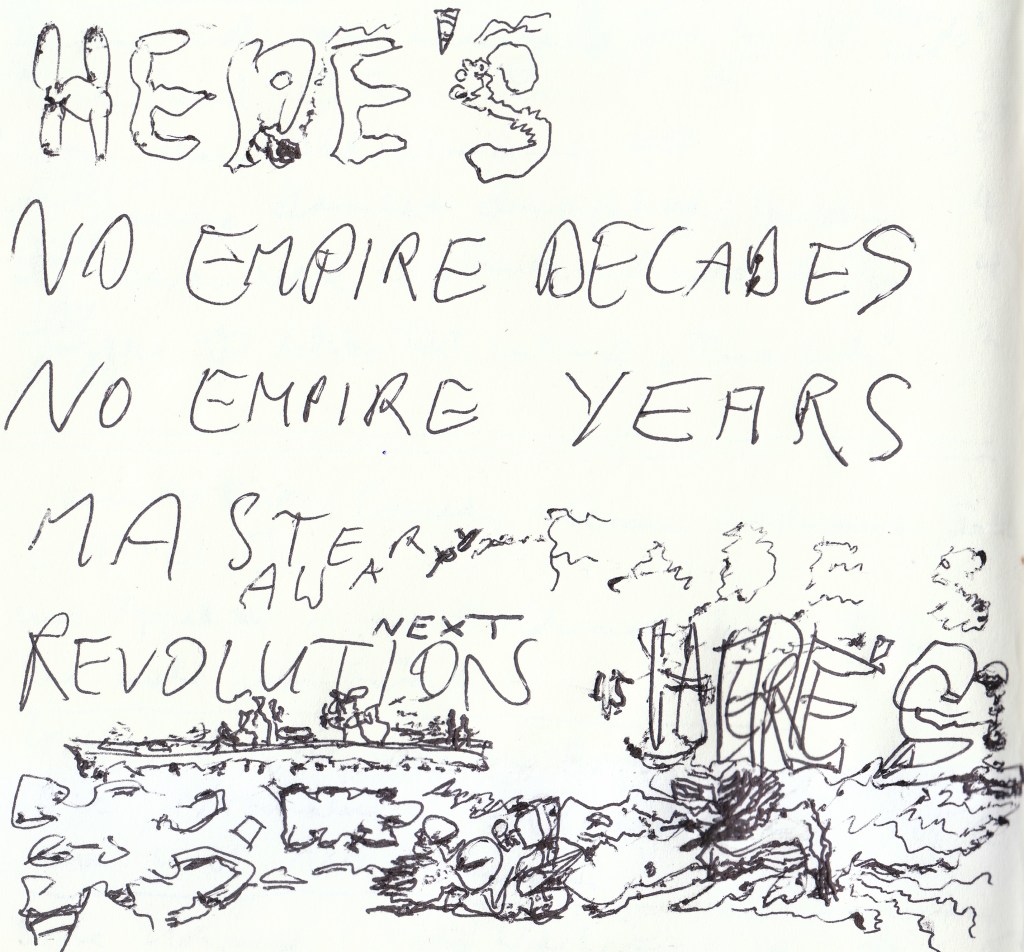 HERE'S
NO EMPIRE DECADES
NO EMPIRE YEARS
MASTER
AWAY
FADES
NEXT
REVOLUTIONS
IS HERE'S